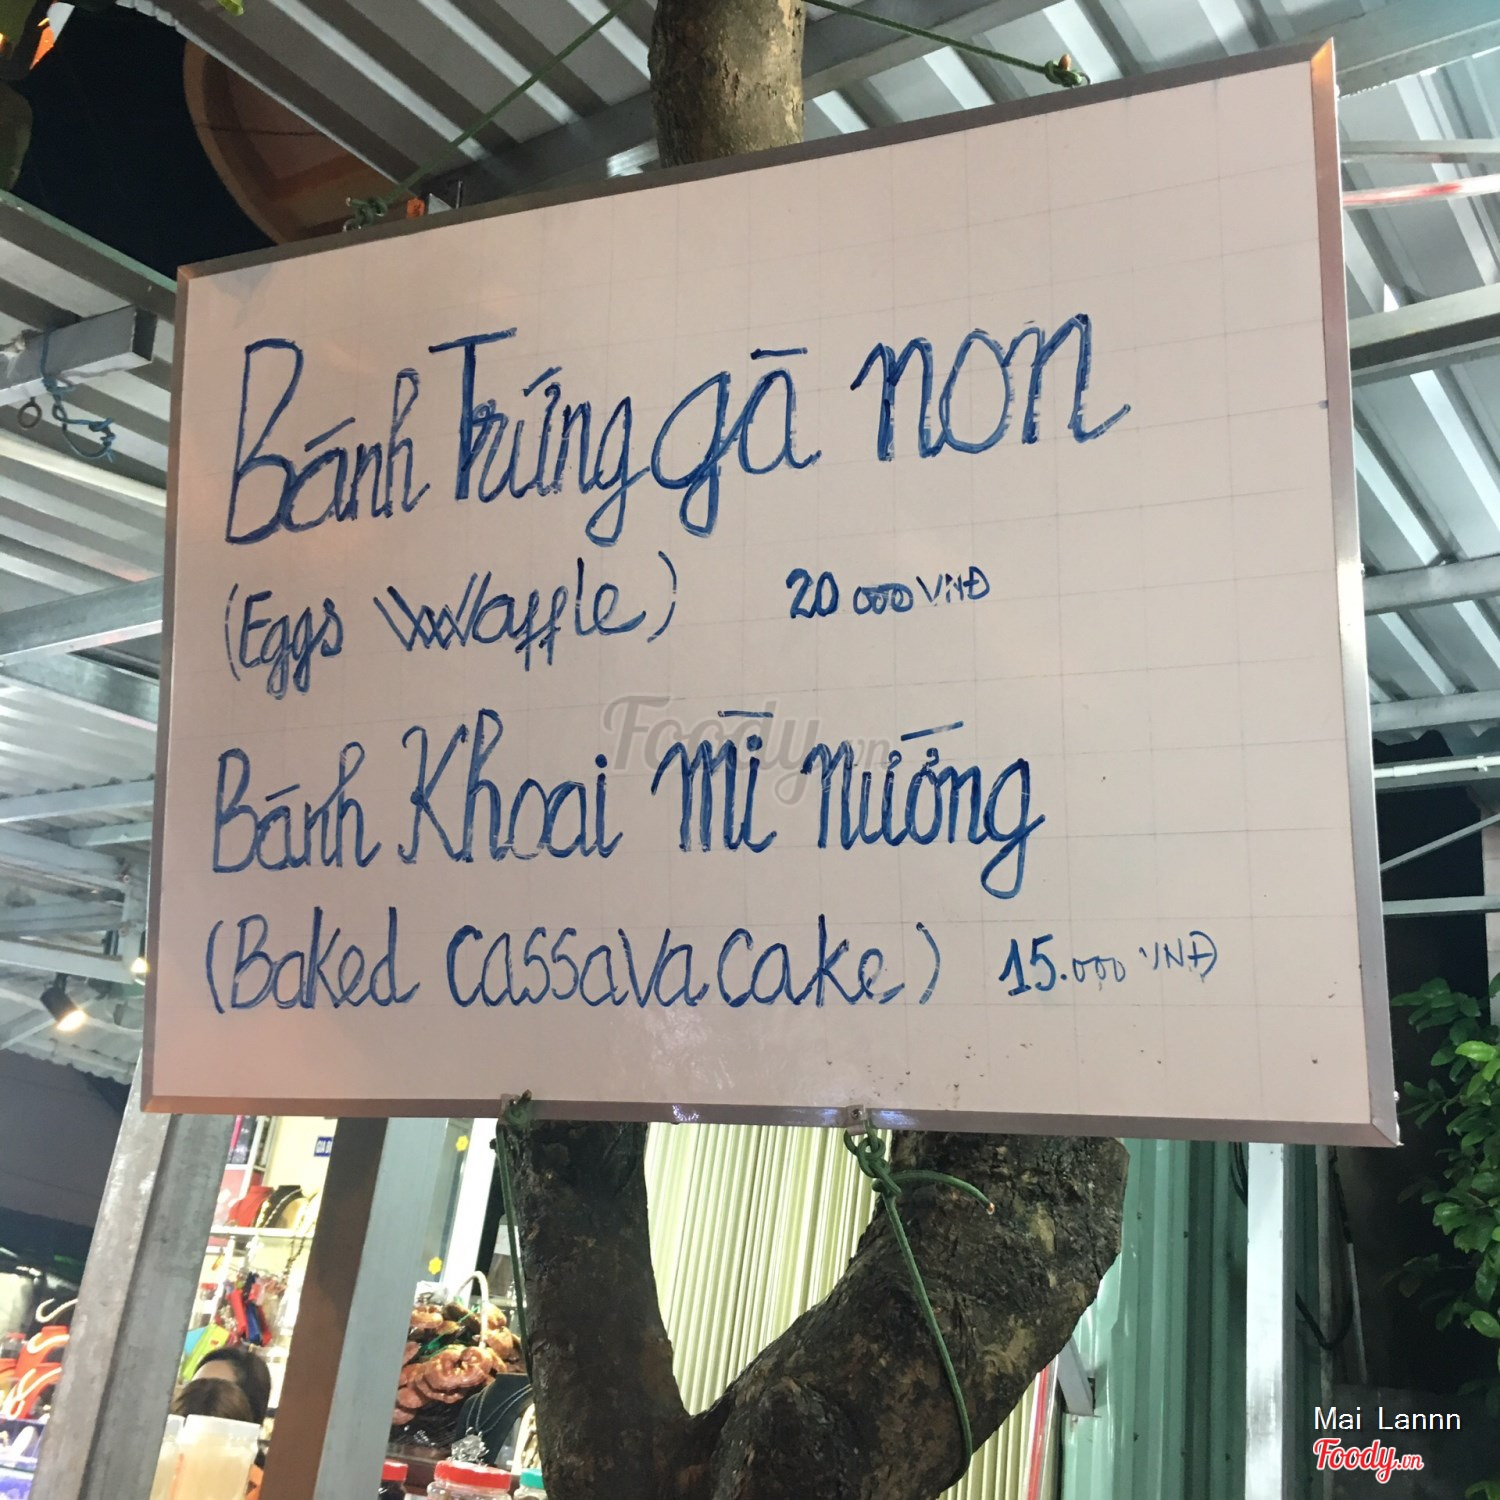 Bánh Trứng gà non
(Eggs Waffle) 20 000 VNĐ
Foody.vn
Bánh Khoai mì nướng
(Baked cassava cake) 15.000 VNĐ
Mai Lannn
Foody.vn